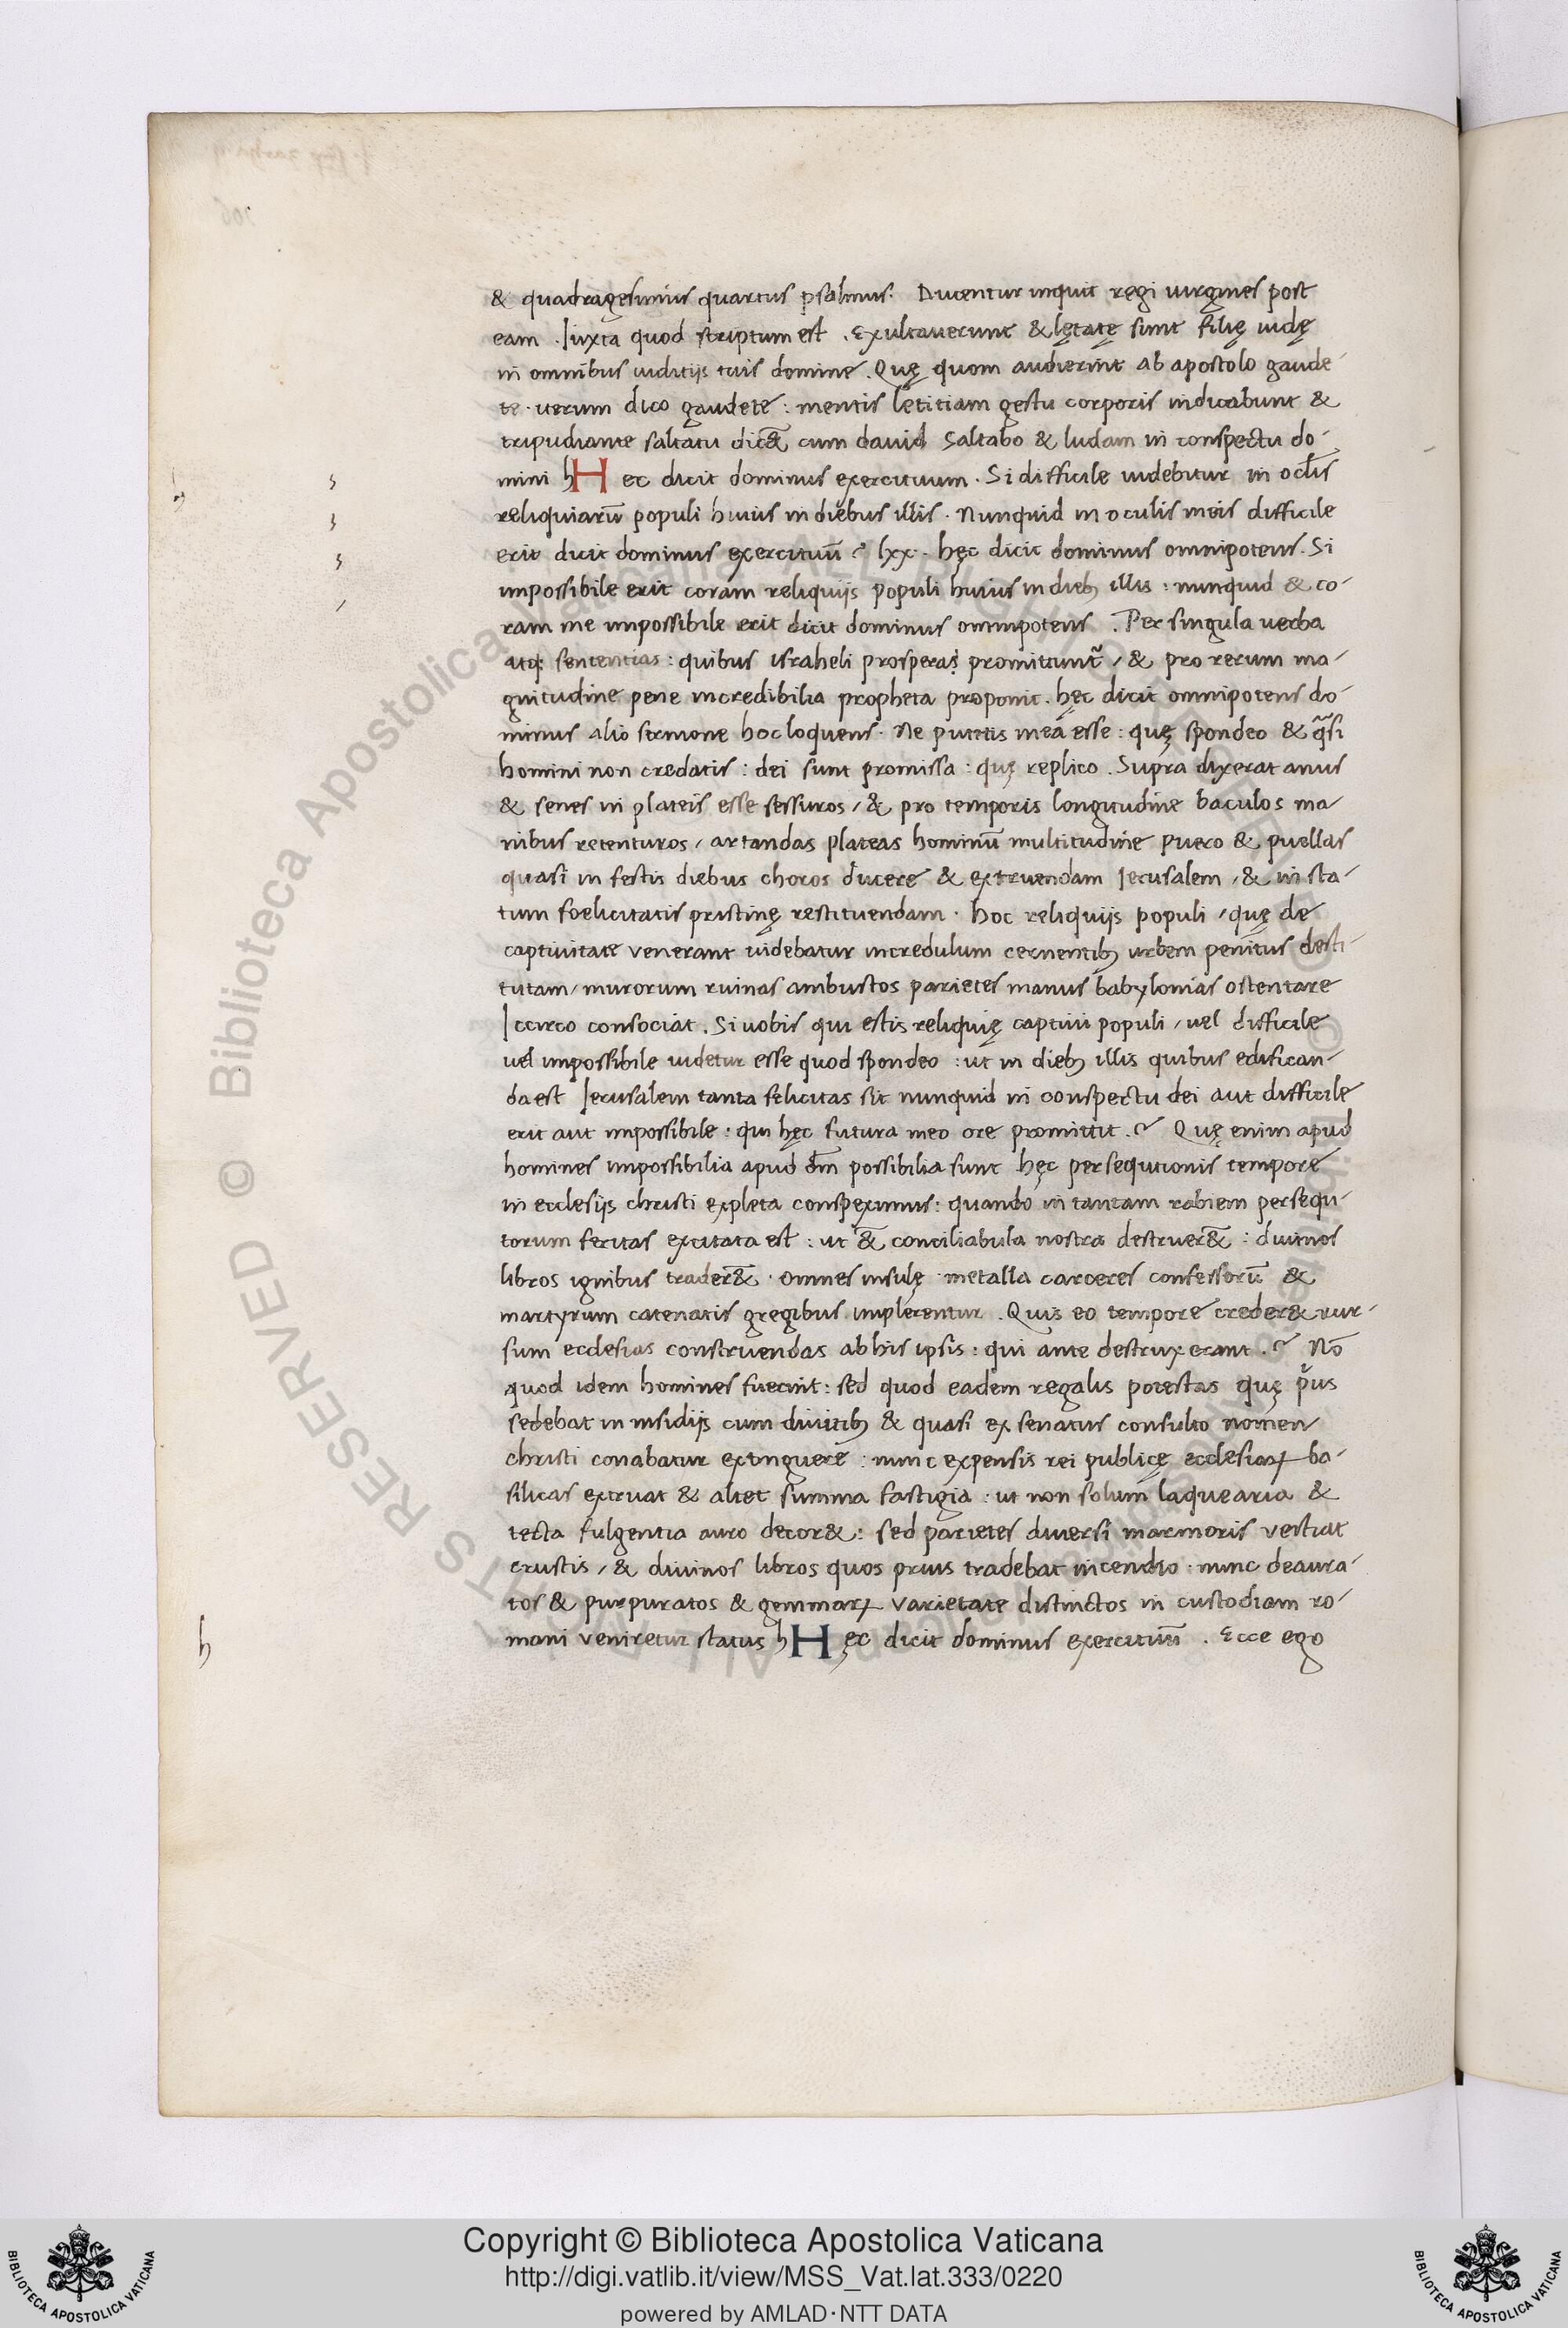 & quadragesimus quartus psalmus. Ducentur inquit regi uirgines post
eam . Iuxta quod scriptum est . Exultauerunt & lętatę sunt filię iudę
in omnibus iuditijs tuis domine . Quę quom audierint ab apostolo gaude-
te . uerum dico gaudete : mentis lętitiam gestu corporis indicabunt &
tripudiante saltatu dic&̄ cum dauid Saltabo & ludam in conspectu do-
mini h H ec dicit dominus exercituum . Si difficile uidebitur in oc̄lis
reliquiarū populi huius in diebus illis . Nunquid in oculis meis difficile
erit dicit dominus exercituū ? lxx . hęc dicit dominus omnipotens . Si
impossibile erit coram reliquijs populi huius in dieb; illis : nunquid & co-
ram me impossibile erit dicit dominus omnipotens . Per singula uerba
atq; sententias : quibus israheli prospera promittunt᷑ / & pro rerum ma-
gnitudine pene incredibilia propheta proponit . hęc dicit omnipotens do-
minus alio sermone hoc loquens . Ne putetis mea esse : quę spondeo & q̄si
homini non credatis : dei sunt promissa : quę replico . Supra dixerat anus
& senes in plateis esse sessuros / & pro temporis longitudine baculos ma-
nibus retenturos / artandas plateas hominū multitudine puero & puellas
quasi in festis diebus choros ducere & extruendam Ierusalem / & in sta-
tum foelicitatis pristinę restituendam . hoc reliquijs populi / quę de
captiuitate venerant uidebatur incredulum cernentib; urbem penitus desti-
tutam / murorum ruinas ambustos parietes manus babylonias ostentare
Iccirco consociat . Si uobis qui estis reliquię captiui populi / uel difficile
uel impossibile uidetur esse quod spondeo : ut in dieb; illis quibus edifican-
da est Ierusalem tanta felicitas sit nunquid in conspectu dei aut difficile
erit aut impossibile : qui hęc futura meo ore promittit . ? Quę enim apud
homines impossibilia apud dm̄ possibilia sunt hęc persequtionis tempore
in ecclesijs christi expleta conspeximus : quando in tantam rabiem persequ-
torum feritas excitata est : ut &̄ conciliabula nostra destruer&̄ : diuinos
libros ignibus trader&̄ . omnes insulę metalla carceres confessorū &
martyrum catenatis gregibus implerentur . Quis eo tempore creder& rur-
sum ecclesias construendas ab his ipsis : qui ante destruxerant . ? Nō
quod idem homines fuerint : sed quod eadem regalis potestas quę pͥus
sedebat in insidijs cum diuitib; & quasi ex senatus consulto nomen
christi conabatur extinguere : nunc expensis rei publicę ecclesiaꝝ ba-
silicas extruat & altet summa fastigia : ut non solum laquearia &
tecta fulgentia auro decor& : sed parietes diuersi marmoris vestiat
crustis / & diuinos libros quos prius tradebat incendio . nunc deaura-
tos & purpuratos & gemmaꝝ varietate distinctos in custodiam ro-
mani veniretur status h H ęc dicit dominus exercituū . Ecce ego
h
Copyright © Biblioteca Apostolica Vaticana
http://digi.vatlib.it/view/MSS_Vat.lat.333/0220
powered by AMLAD·NTT DATA
BIBLIOTECA APOSTOLICA VATICANA
BIBLIOTECA APOSTOLICA VATICANA